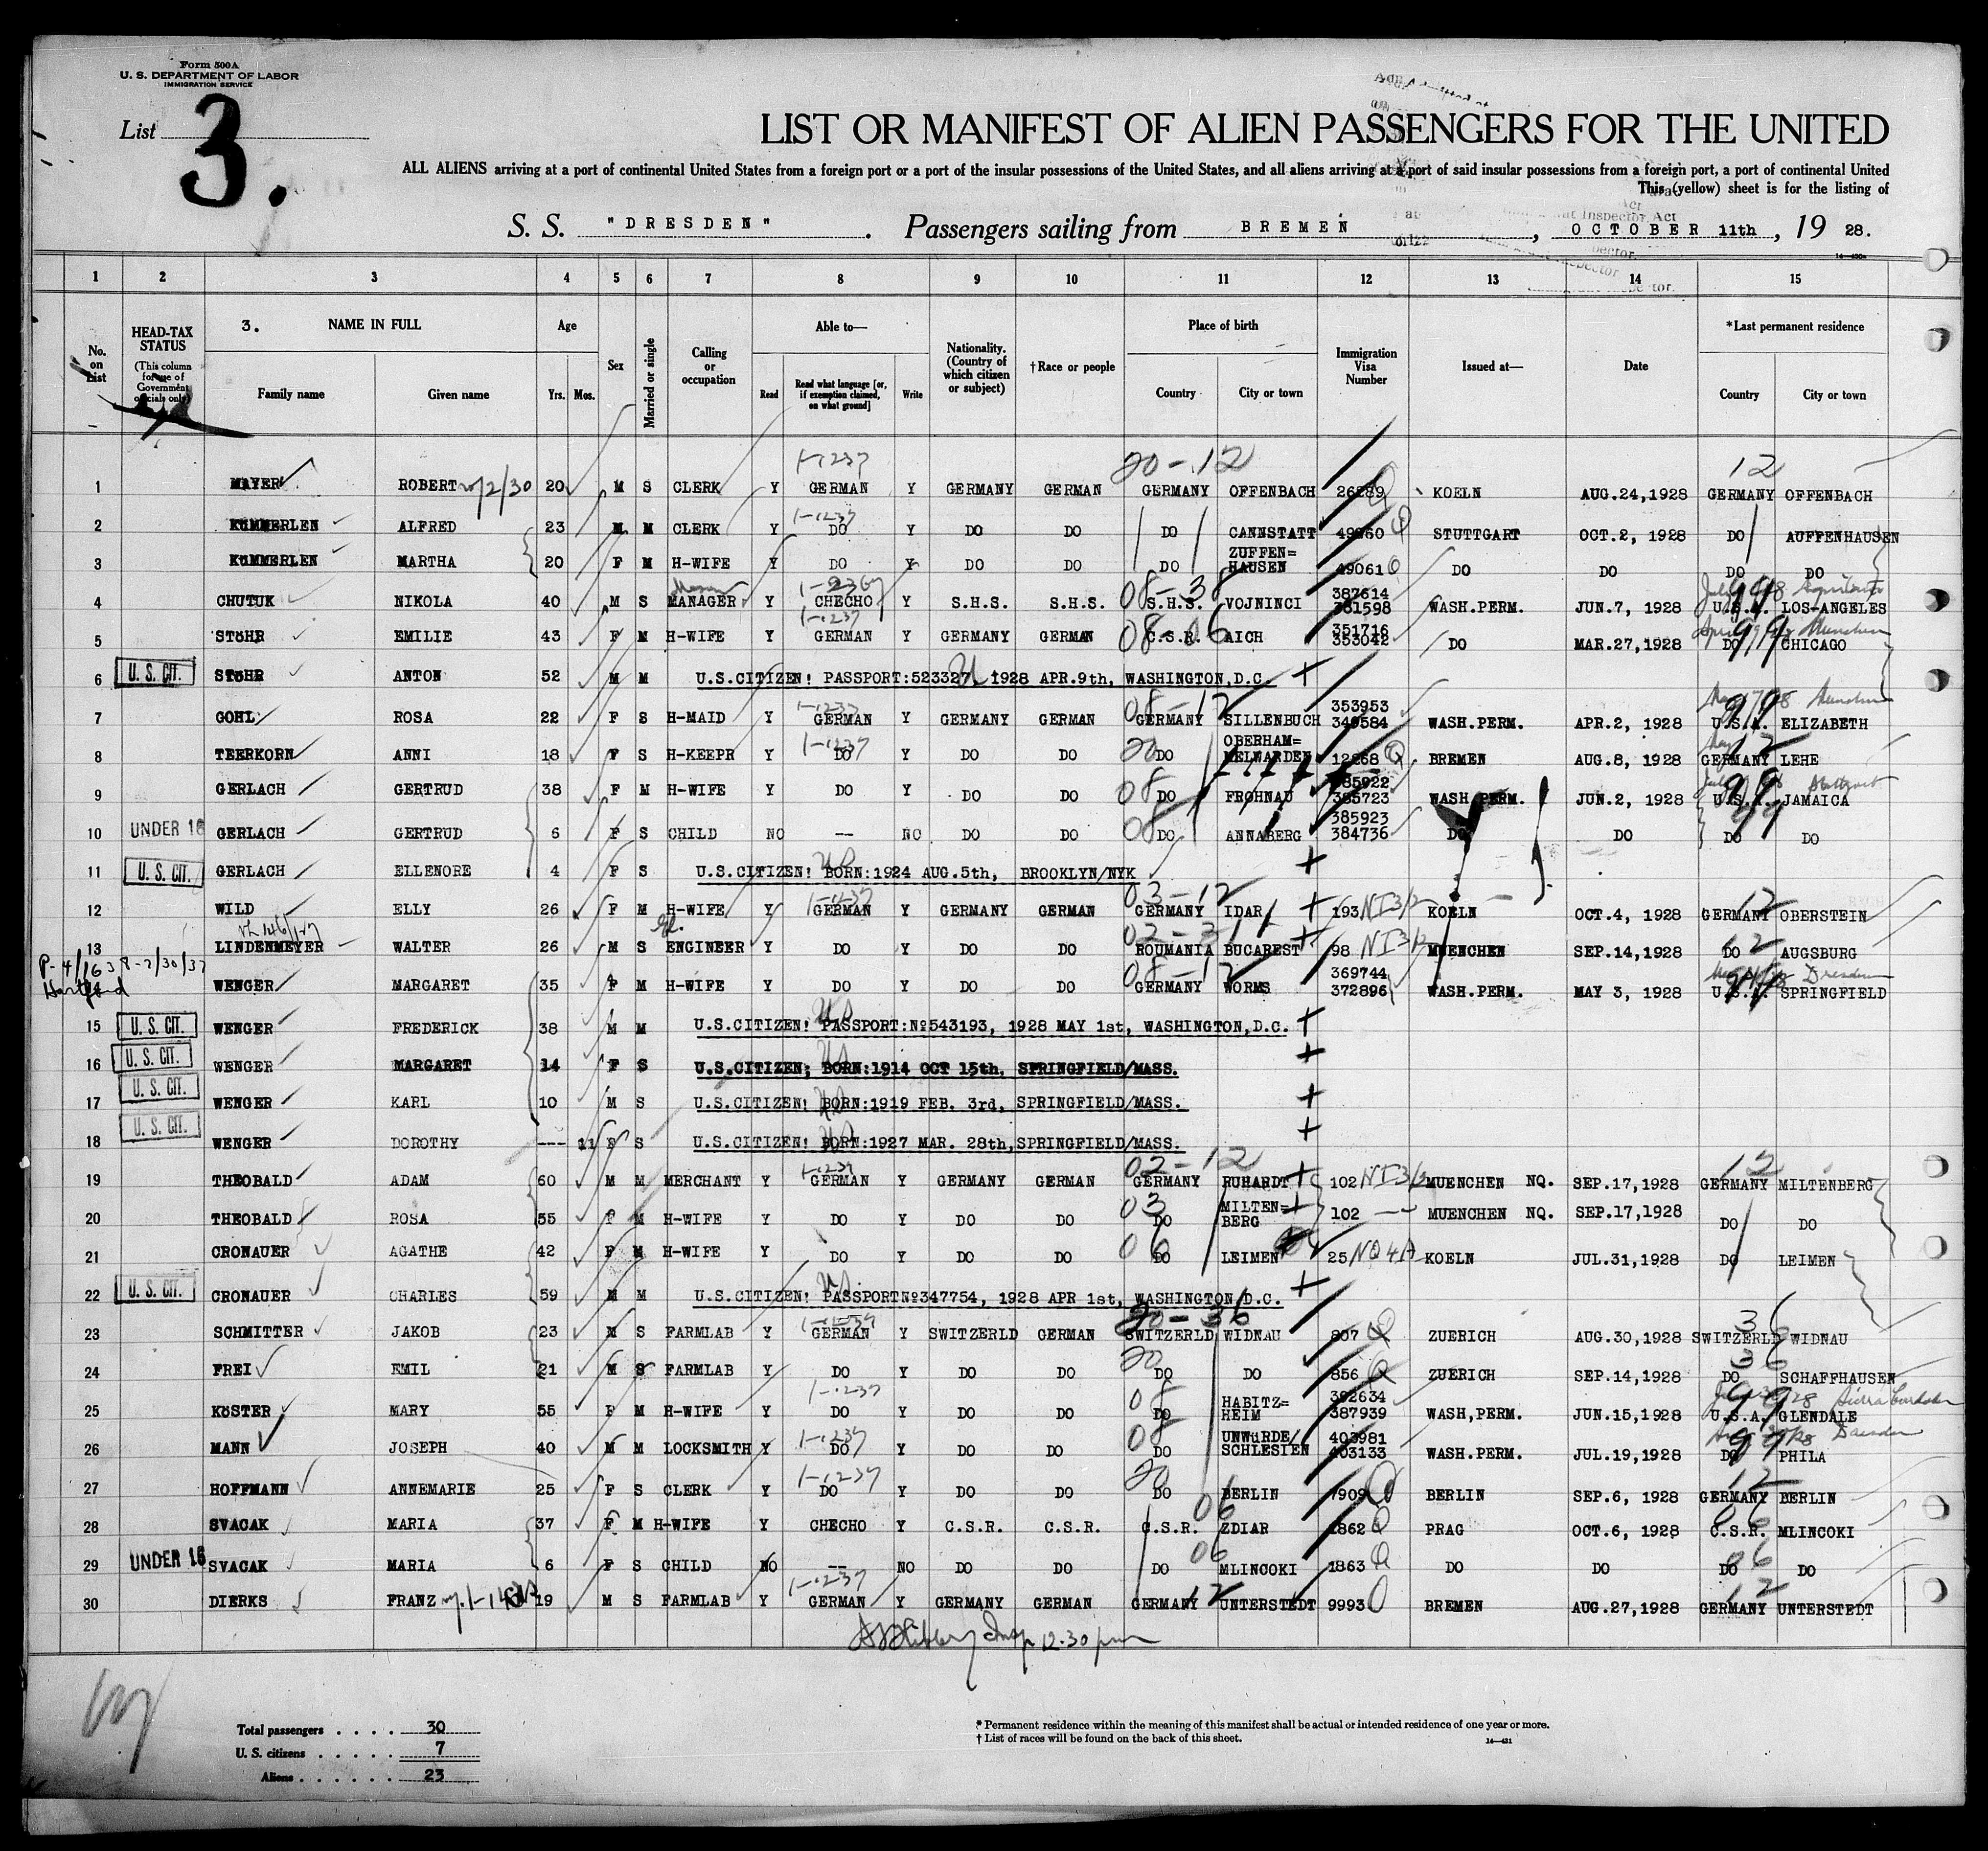 Form 500A
U. S. DEPARTMENT OF LABOR
IMMIGRATION SERVICE
List 3.
LIST OR MANIFEST OF ALIEN PASSENGERS FOR THE UNITED
ALL ALIENS arriving at a port of continental United States from a foreign port or a port of the insular possessions of the United States, and all aliens arriving at a port of said insular possessions from a foreign port, a port of continental United
This (yellow) sheet is for the listing of
S. S. "DRESDEN". Passengers sailing from BREMEN, OCTOBER 11th, 19 28.
1 2 3 4 5 6 7 8 9 10 11 12 13 14 15
No. on List
HEAD-TAX STATUS (This column for use of Government officials only)
3. NAME IN FULL Family name Given name
Age Yrs. Mos.
Sex
Married or single
Calling or occupation
Able to— Read Read what language [or, if exemption claimed, on what ground] Write
Nationality. (Country of which citizen or subject)
† Race or people
Place of birth Country City or town
Immigration Visa Number
Issued at—
Date
*Last permanent residence Country City or town
1 MAYER ROBERT 20 M S CLERK Y GERMAN Y GERMANY GERMAN GERMANY OFFENBACH 26289 KOELN AUG.24,1928 GERMANY OFFENBACH
2 KüMMERLEN ALFRED 23 M M CLERK Y DO Y DO DO DO CANNSTATT 49060 STUTTGART OCT.2, 1928 DO AUFFENHAUSEN
3 KüMMERLEN MARTHA 20 F M H-WIFE Y DO Y DO DO DO ZUFFEN=HAUSEN 49061 DO DO DO DO
4 CHUTUK NIKOLA 40 M S MANAGER Y CHECHO Y S.H.S. S.H.S. S.H.S. VOJNINCI 387614 WASH.PERM. JUN.7, 1928 U.S.A. LOS-ANGELES
5 STöHR EMILIE 43 F M H-WIFE Y GERMAN Y GERMANY GERMAN C.S.R. AICH 351716 353042 DO MAR.27,1928 DO CHICAGO
6 U. S. CIT. STöHR ANTON 52 M M U.S.CITIZEN! PASSPORT:523327, 1928 APR.9th, WASHINGTON,D.C.
7 GOHL ROSA 22 F S H-MAID Y GERMAN Y GERMANY GERMAN GERMANY SILLENBUCH 353953 340584 WASH.PERM. APR.2, 1928 U.S.A. ELIZABETH
8 TEERKORN ANNI 18 F S H-KEEPR Y DO Y DO DO DO OBERHAM=MELWARDEN 12268 BREMEN AUG.8, 1928 GERMANY LEHE
9 GERLACH GERTRUD 38 F M H-WIFE Y DO Y DO DO DO FROHNAU 385922 385723 WASH.PERM. JUN.2, 1928 U.S.A. JAMAICA
10 UNDER 16 GERLACH GERTRUD 6 F S CHILD NO -- NO DO DO DO ANNABERG 385923 384736 DO DO DO DO
11 U. S. CIT. GERLACH ELLENORE 4 F S U.S.CITIZEN! BORN:1924 AUG.5th, BROOKLYN/NYK
12 WILD ELLY 26 F M H-WIFE Y GERMAN Y GERMANY GERMAN GERMANY IDAR 193 KOELN OCT.4, 1928 GERMANY OBERSTEIN
13 LINDENMEYER WALTER 26 M S ENGINEER Y DO Y DO DO ROUMANIA BUCAREST 98 MUENCHEN SEP.14,1928 DO AUGSBURG
Hartford
WENGER MARGARET 35 F M H-WIFE Y DO Y DO DO GERMANY WORMS 369744 372896 WASH.PERM. MAY 3, 1928 U.S.A. SPRINGFIELD
15 U. S. CIT. WENGER FREDERICK 38 M M U.S.CITIZEN! PASSPORT:№543193, 1928 MAY 1st, WASHINGTON,D.C.
16 U. S. CIT. WENGER MARGARET 14 F S U.S.CITIZEN; BORN:1914 OCT 15th, SPRINGFIELD/MASS.
17 U. S. CIT. WENGER KARL 10 M S U.S.CITIZEN! BORN:1919 FEB. 3rd, SPRINGFIELD/MASS.
18 U. S. CIT. WENGER DOROTHY --- 11 F S U.S.CITIZEN! BORN:1927 MAR. 28th,SPRINGFIELD/MASS.
19 THEOBALD ADAM 60 M M MERCHANT Y GERMAN Y GERMANY GERMAN GERMANY RUHARDT 102 MUENCHEN NQ. SEP.17,1928 GERMANY MILTENBERG
20 THEOBALD ROSA 55 F M H-WIFE Y DO Y DO DO DO MILTEN=BERG 102 MUENCHEN NQ. SEP.17,1928 DO DO
21 CRONAUER AGATHE 42 F M H-WIFE Y DO Y DO DO DO LEIMEN 25 KOELN JUL.31,1928 DO LEIMEN
22 U. S. CIT. CRONAUER CHARLES 59 M M U.S.CITIZEN! PASSPORT№347754, 1928 APR 1st, WASHINGTON,D.C.
23 SCHMITTER JAKOB 23 M S FARMLAB Y GERMAN Y SWITZERLD GERMAN SWITZERLD WIDNAU 807 ZUERICH AUG.30,1928 SWITZERLD WIDNAU
24 FREI EMIL 21 M S FARMLAB Y DO Y DO DO DO DO 856 ZUERICH SEP.14,1928 DO SCHAFFHAUSEN
25 KöSTER MARY 55 F M H-WIFE Y DO Y DO DO DO HABITZ=HEIM 392634 387939 WASH,PERM. JUN.15,1928 U.S.A. GLENDALE
26 MANN JOSEPH 40 M M LOCKSMITH Y DO Y DO DO DO UNWüRDE/SCHLESIEN 403981 403133 WASH.PERM. JUL.19,1928 DO PHILA
27 HOFFMANN ANNEMARIE 25 F S CLERK Y DO Y DO DO DO BERLIN 7909 BERLIN SEP.6, 1928 GERMANY BERLIN
28 SVACAK MARIA 37 F M H-WIFE Y CHECHO Y C.S.R. C.S.R. C.S.R. ZDIAR 1862 PRAG OCT.6, 1928 C.S.R. MLINCOKI
29 UNDER 16 SVACAK MARIA 6 F S CHILD NO -- NO DO DO DO MLINCOKI 1863 DO DO DO DO
30 DIERKS FRANZ 19 M S FARMLAB Y GERMAN Y GERMANY GERMAN GERMANY UNTERSTEDT 9993 BREMEN AUG.27,1928 GERMANY UNTERSTEDT
Insp 12.30 pm
Total passengers .... 30
U. S. citizens ..... 7
Aliens ...... 23
* Permanent residence within the meaning of this manifest shall be actual or intended residence of one year or more.
† List of races will be found on the back of this sheet.
14—431